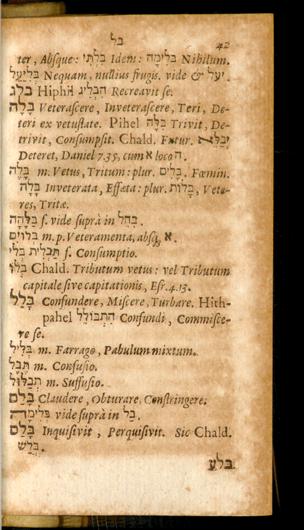 בל 42
ter, Absque: בִּלְתִּי Idem: בְּלִימָה Nihilum.
בְּלִיַּעַל Nequam, nullius frugis. vide & יעל.
בלג Hiph: הִבְלִיג Recreavit se.
בָּלָה Veterascere, Inveterascere, Teri, De-
teri ex vetustate. Pihel בִּלָּה Trivit, De-
trivit, Consumpsit. Chald. Futur. יְבַלֵּא
Deteret, Daniel 7.25, cum א loco ה.
בָּלֶה m. Vetus, Tritum: plur. בָּלִים. Fœmin.
בָּלָה Inveterata, Effæta: plur. בָּלוֹת, Vete-
res, Tritæ.
בַּלָּהָה f. vide suprà in בהל.
בלוים m. p. Veteramenta, absq; א.
תַּבְלִית f. Consumptio.
בְּלוֹ Chald. Tributum vetus: vel Tributum
capitale sive capitationis, Esr. 4.13.
בָּלַל Confundere, Miscere, Turbare. Hith-
pahel הִתְבּוֹלֵל Confundi, Commisce-
re se.
בְּלִיל m. Farrago, Pabulum mixtum.
תֶּבֶל m. Confusio.
תְּבַלּוּל m. Suffusio.
בָּלַם Claudere, Obturare. Constringere.
בְּלִימָה vide suprà in בל.
Inquisivit, Perquisivit. Sic Chald.
בלש.
בלע